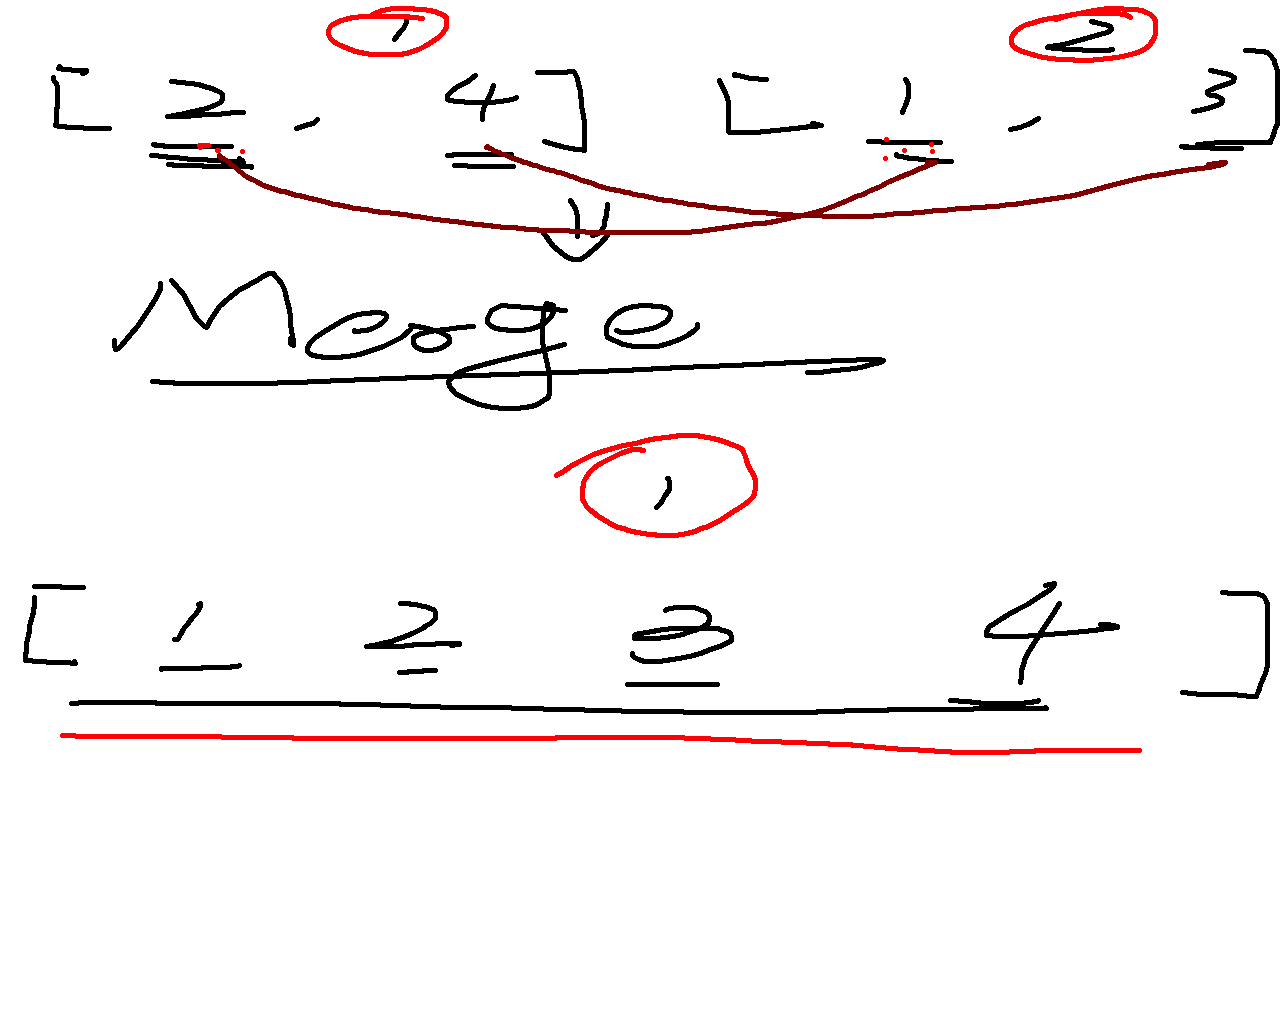 1 2
[2, 4] [1, 3]
Merge
1
[1 2 3 4]